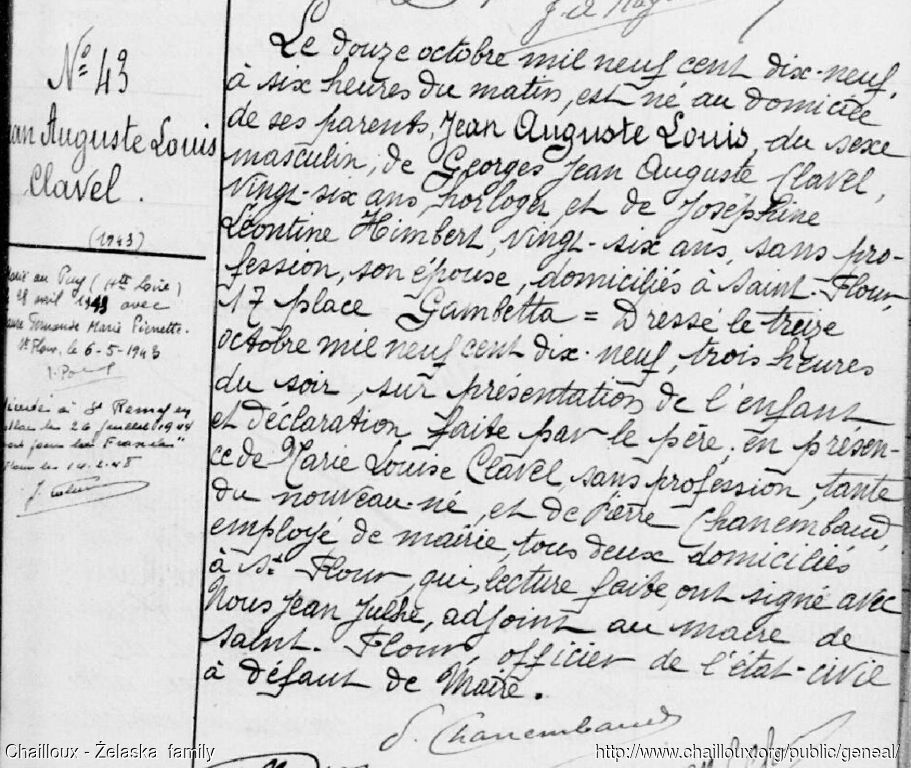 N° 43
Jean Auguste Louis
Clavel.
(1943)
Marié au Puy (Hte Loire)
avril 1943 avec
Fernande Marie Pienette.
St Flour, le 6-5-1943
Décédé à St Remy en
le 26 1944
"Mort pour la France"
14.2.45
Le douze octobre mil neuf cent dix-neuf,
à six heures du matin, est né au domicile
de ses parents, Jean Auguste Louis, du sexe
masculin, de Georges Jean Auguste Clavel,
vingt-six ans, horloger et de Joséphine
Léontine Himbert, vingt-six ans, sans pro-
fession, son épouse, domiciliés à Saint-Flour,
17 place Gambetta = Dressé le treize
octobre mil neuf cent dix-neuf, trois heures
du soir, sur présentation de l'enfant
et déclaration faite par le père, en présen-
ce de Marie Louise Clavel, sans profession, tante
du nouveau-né, et de Pierre Chanembaud,
employé de mairie, tous deux domiciliés
à St Flour, qui, lecture faite, ont signé avec
Nous Jean Julhe, adjoint au maire de
Saint-Flour, officier de l'état-civil
à défaut de Maire.
P. Chanembaud
Chailloux - Želaska family
http://www.chailloux.org/public/geneal/